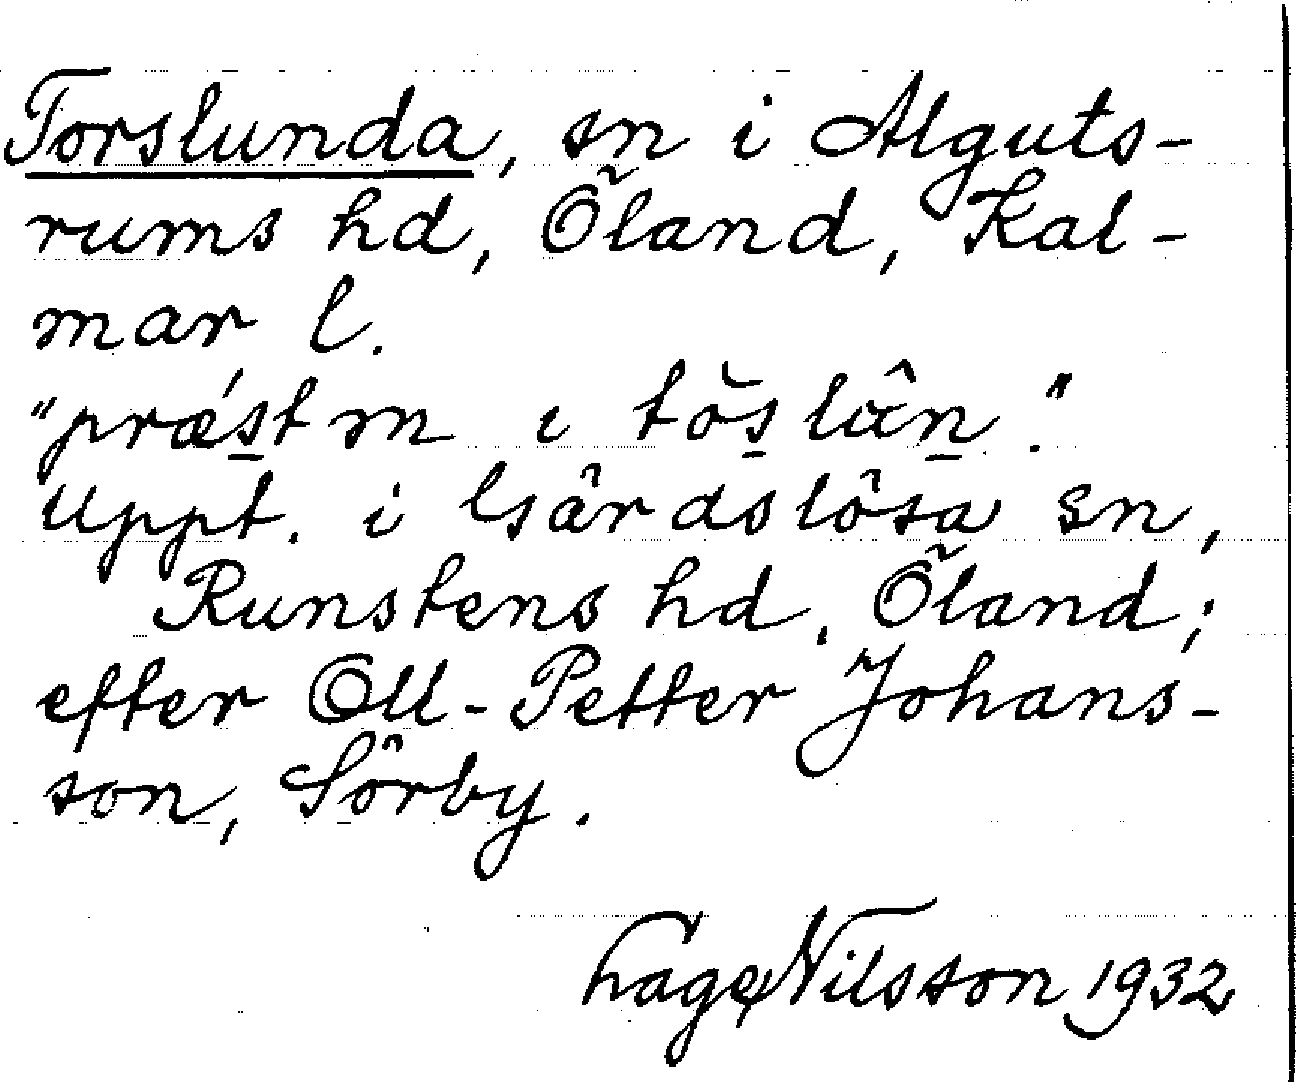 Torslunda, sn i Alguts-
rums hd, Öland, Kal-
mar l.
"prǽs̲tm ı tŏs̲lα̂n̲."
Uppt. i Gärdslösa sn,
Runstens hd, Öland;
efter Oll-Petter Johans-
son, Sörby.
Hage Nilsson 1932